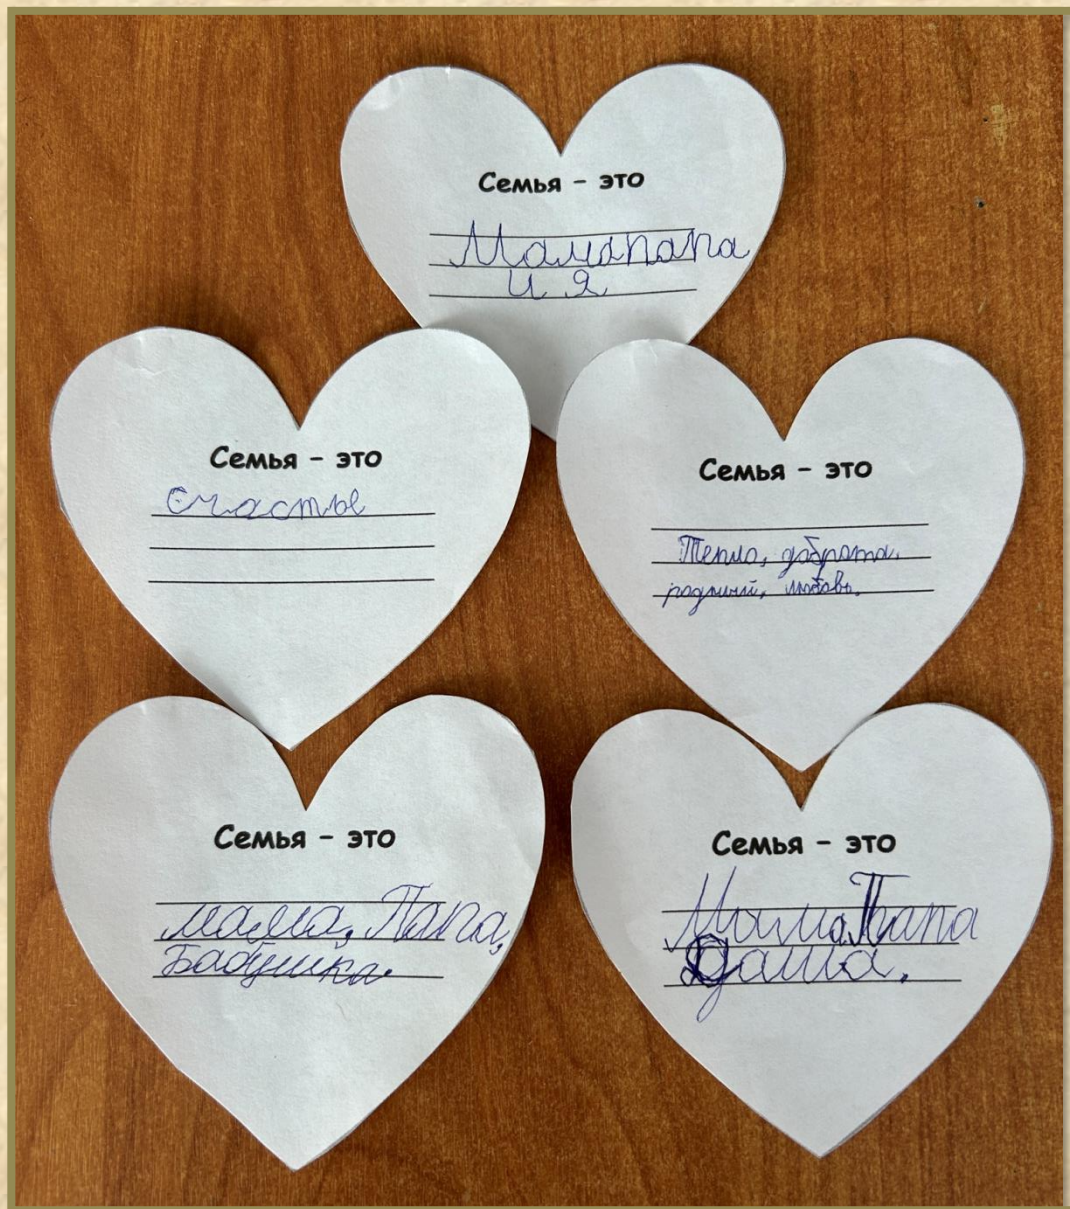 Семья - это
Мамапапа
и я
Семья - это
счастье
Семья - это
Тепло, доброта.
радмний, любовь.
Семья - это
мама, Папа,
Бабушка.
Семья - это
Мама, Папа
даша.